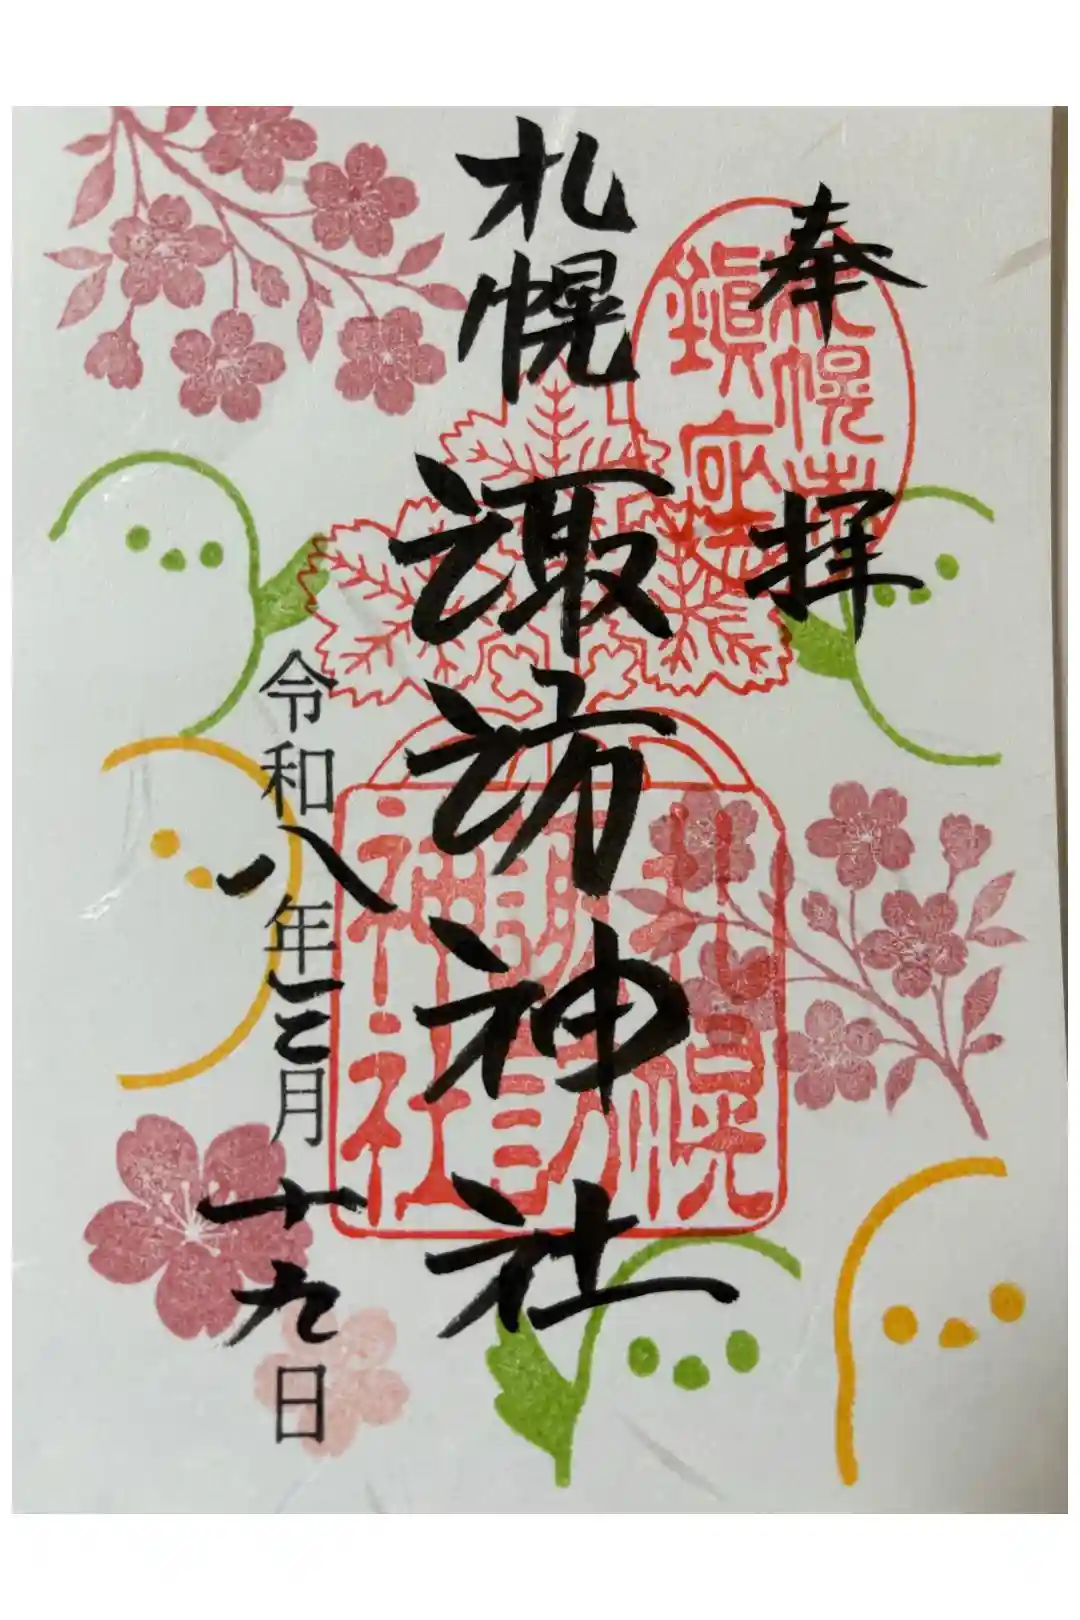 奉拝
札幌
鎮座
札幌 諏訪神社
札幌
諏訪
神社
令和八年三月十九日